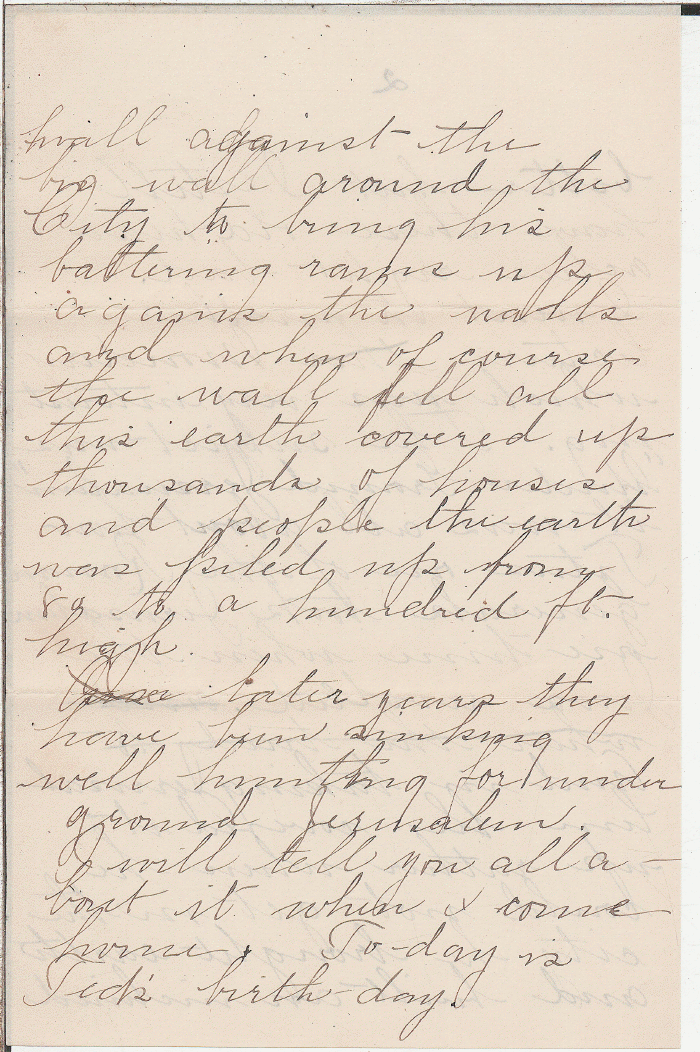 wall against the
big wall around the
City to bring his
battering rams up
agains the walls
and when of course
the wall fell all
this earth covered up
thousands of houses
and people the earth
was piled up from
80 to a hundred ft.
high.
later years they
have been sinking
well hunting for under
ground Jerusalem.
I will tell you all a-
bout it when I come
home. To-day is
Ted's birth-day.